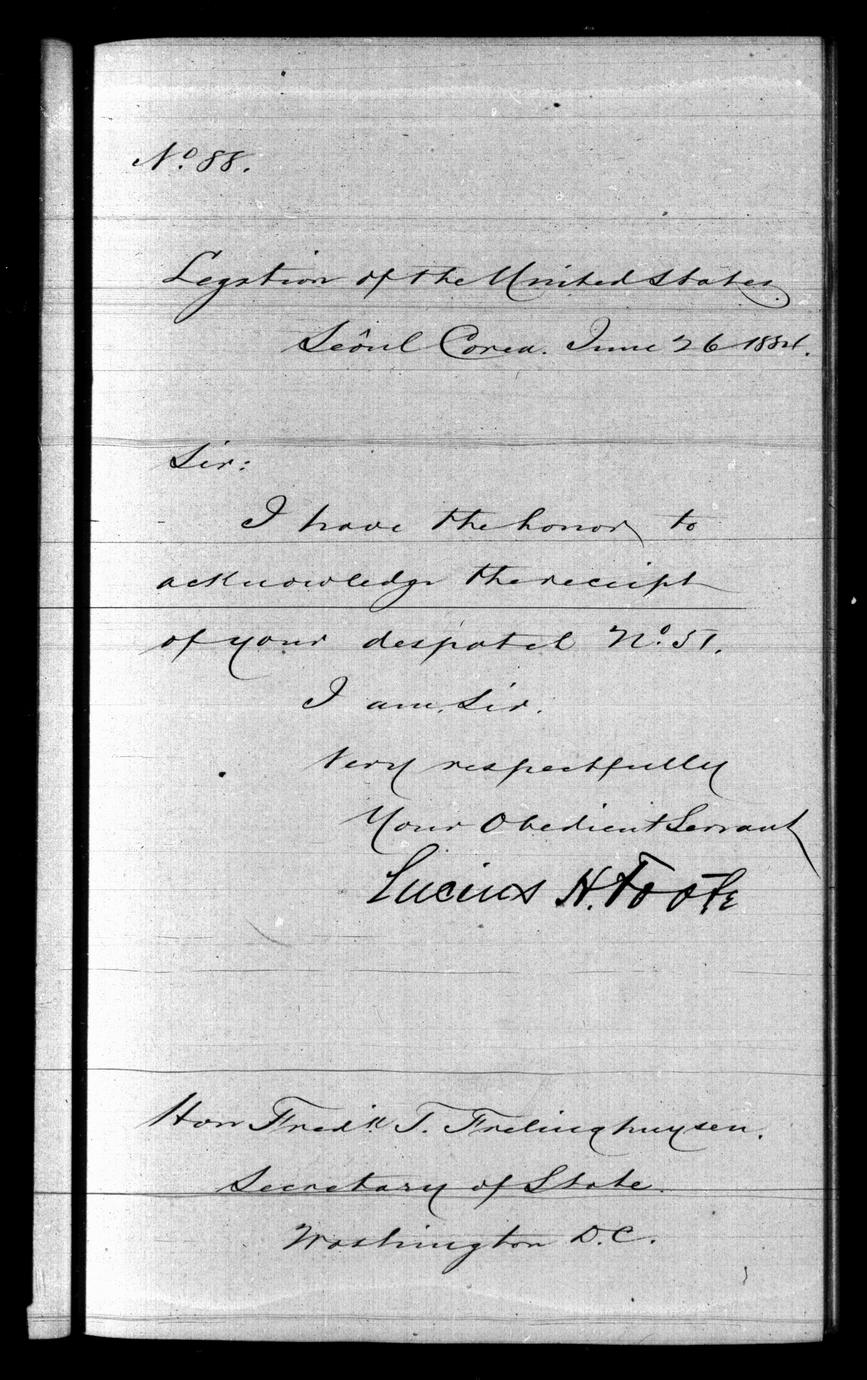 No. 88.
Legation of the United States.
Seôul Corea. June 26 1884.
Sir:
I have the honor to
acknowledge the receipt
of your despatch No. 51.
I am, Sir.
Very respectfully
Your Obedient Servant
Lucius H. Foote
Hon Fredk T. Frelinghuysen.
Secretary of State.
Washington D.C.